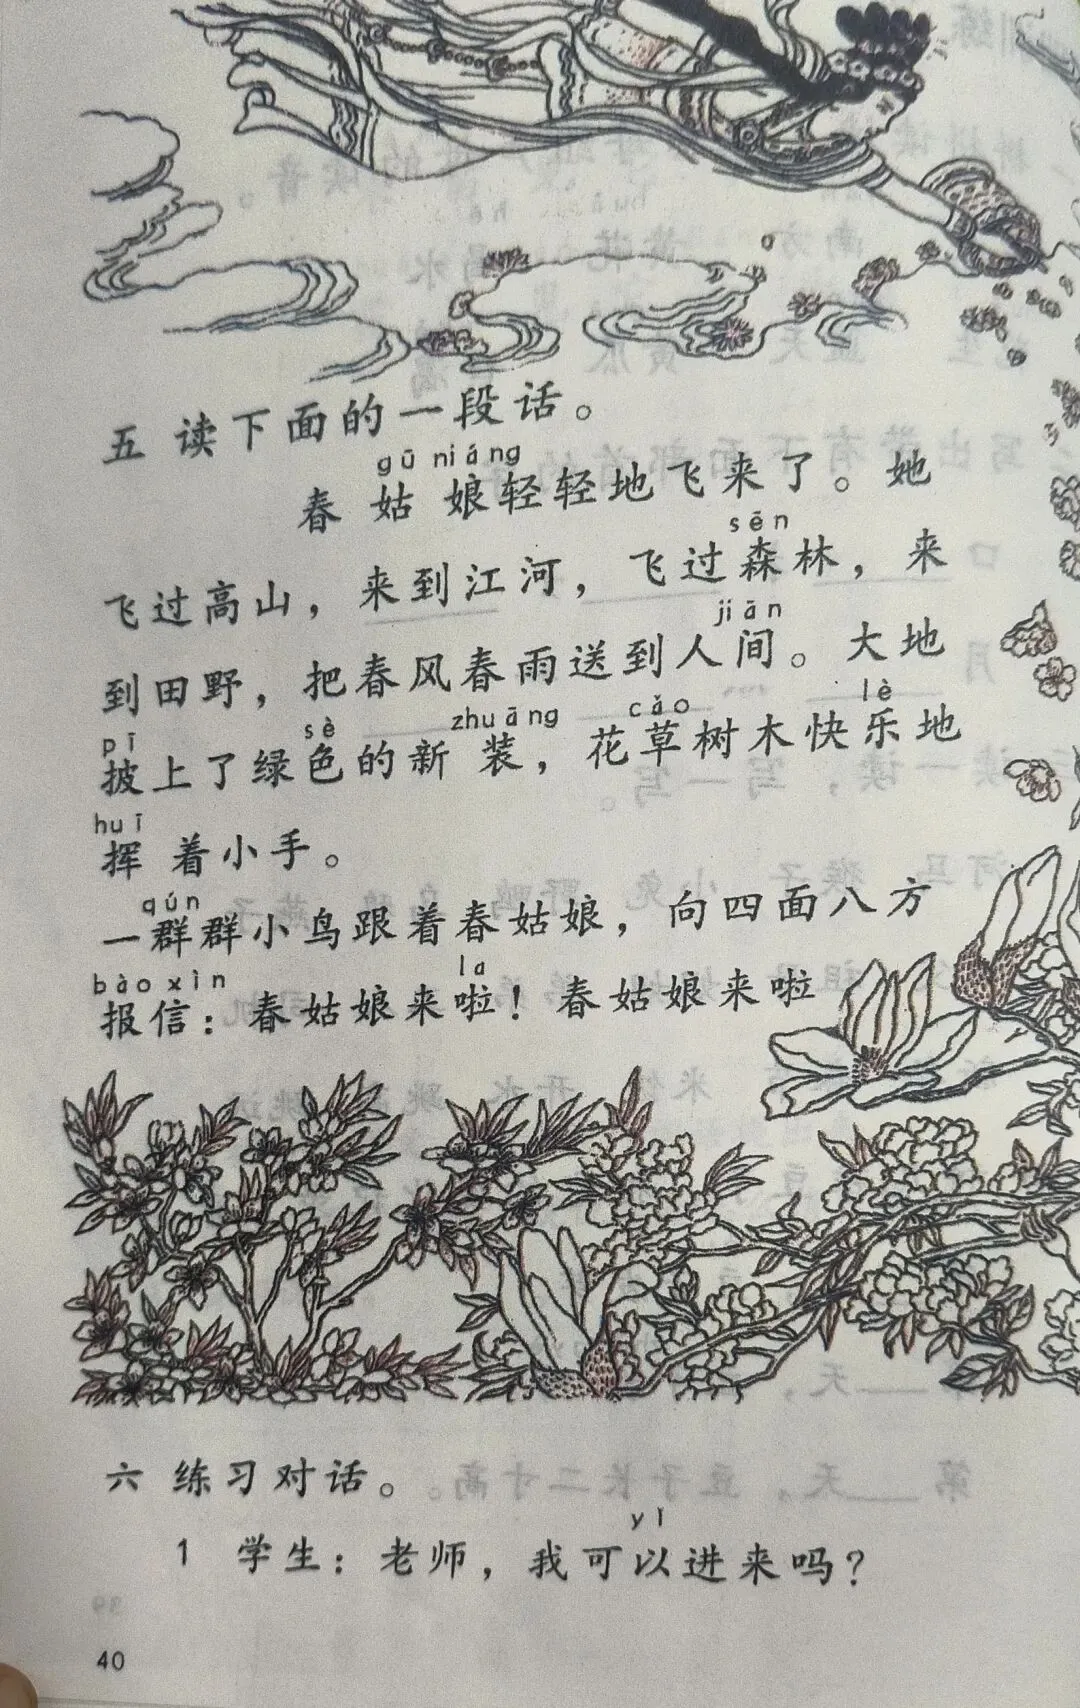 五 读下面的一段话。
gū niáng
春姑娘轻轻地飞来了。她
sēn
飞过高山，来到江河，飞过森林，来
jiān
到田野，把春风春雨送到人间。大地
pī sè zhuāng cǎo lè
披上了绿色的新装，花草树木快乐地
huī
挥着小手。
qún
一群群小鸟跟着春姑娘，向四面八方
bào xìn la
报信：春姑娘来啦！春姑娘来啦
六 练习对话。
yǐ
1 学生：老师，我可以进来吗？
40